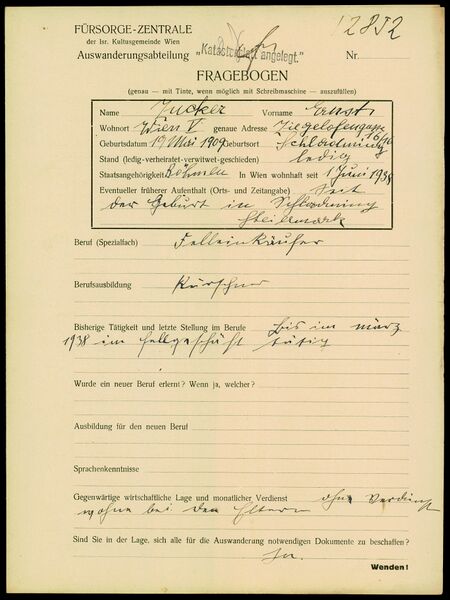 FÜRSORGE-ZENTRALE
der Isr. Kultusgemeinde Wien
Auswanderungsabteilung
"Katasterblatt angelegt."
12852
Nr.
FRAGEBOGEN
(genau — mit Tinte, wenn möglich mit Schreibmaschine — auszufüllen)
Name Zucker Vorname Ernst
Wohnort Wien V genaue Adresse Ziegelofengasse
Geburtsdatum 19 Mai 1909 Geburtsort Schladming
Stand (ledig-verheiratet-verwitwet-geschieden) ledig
Staatsangehörigkeit Böhmen In Wien wohnhaft seit 1 Juni 1938
Eventueller früherer Aufenthalt (Orts- und Zeitangabe) seit
der Geburt in Schladming
Steiermark
Beruf (Spezialfach) Felleinkäufer
Berufsausbildung Kürschner
Bisherige Tätigkeit und letzte Stellung im Berufe Bis im März
1938 im Fellgeschäft tätig
Wurde ein neuer Beruf erlernt? Wenn ja, welcher?
Ausbildung für den neuen Beruf
Sprachenkenntnisse
Gegenwärtige wirtschaftliche Lage und monatlicher Verdienst ohne Verdienst
wohne bei den Eltern
Sind Sie in der Lage, sich alle für die Auswanderung notwendigen Dokumente zu beschaffen?
Ja.
Wenden!